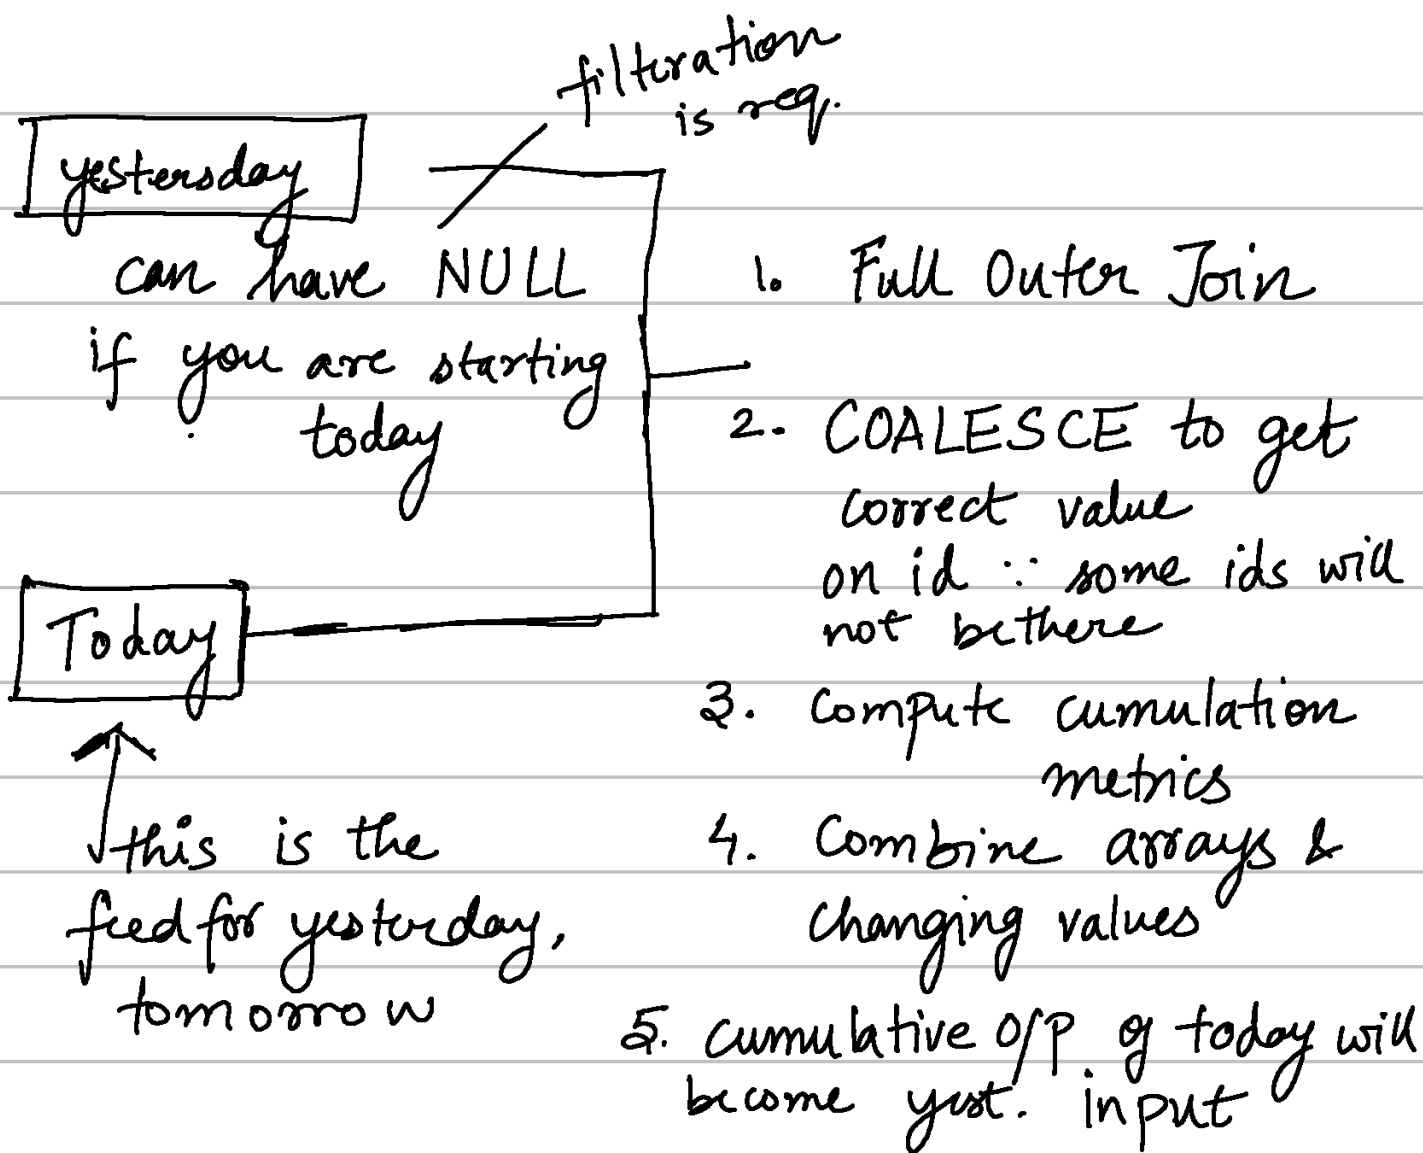 filteration
is req.
yestersday
can have NULL
if you are starting
today
Today
this is the
feed for yesterday,
tomorrow
1. Full Outer Join
2. COALESCE to get
correct value
on id ∵ some ids will
not be there
3. Compute cumulation
metrics
4. Combine arrays &
changing values
5. cumulative O/P of today will
become yest. input